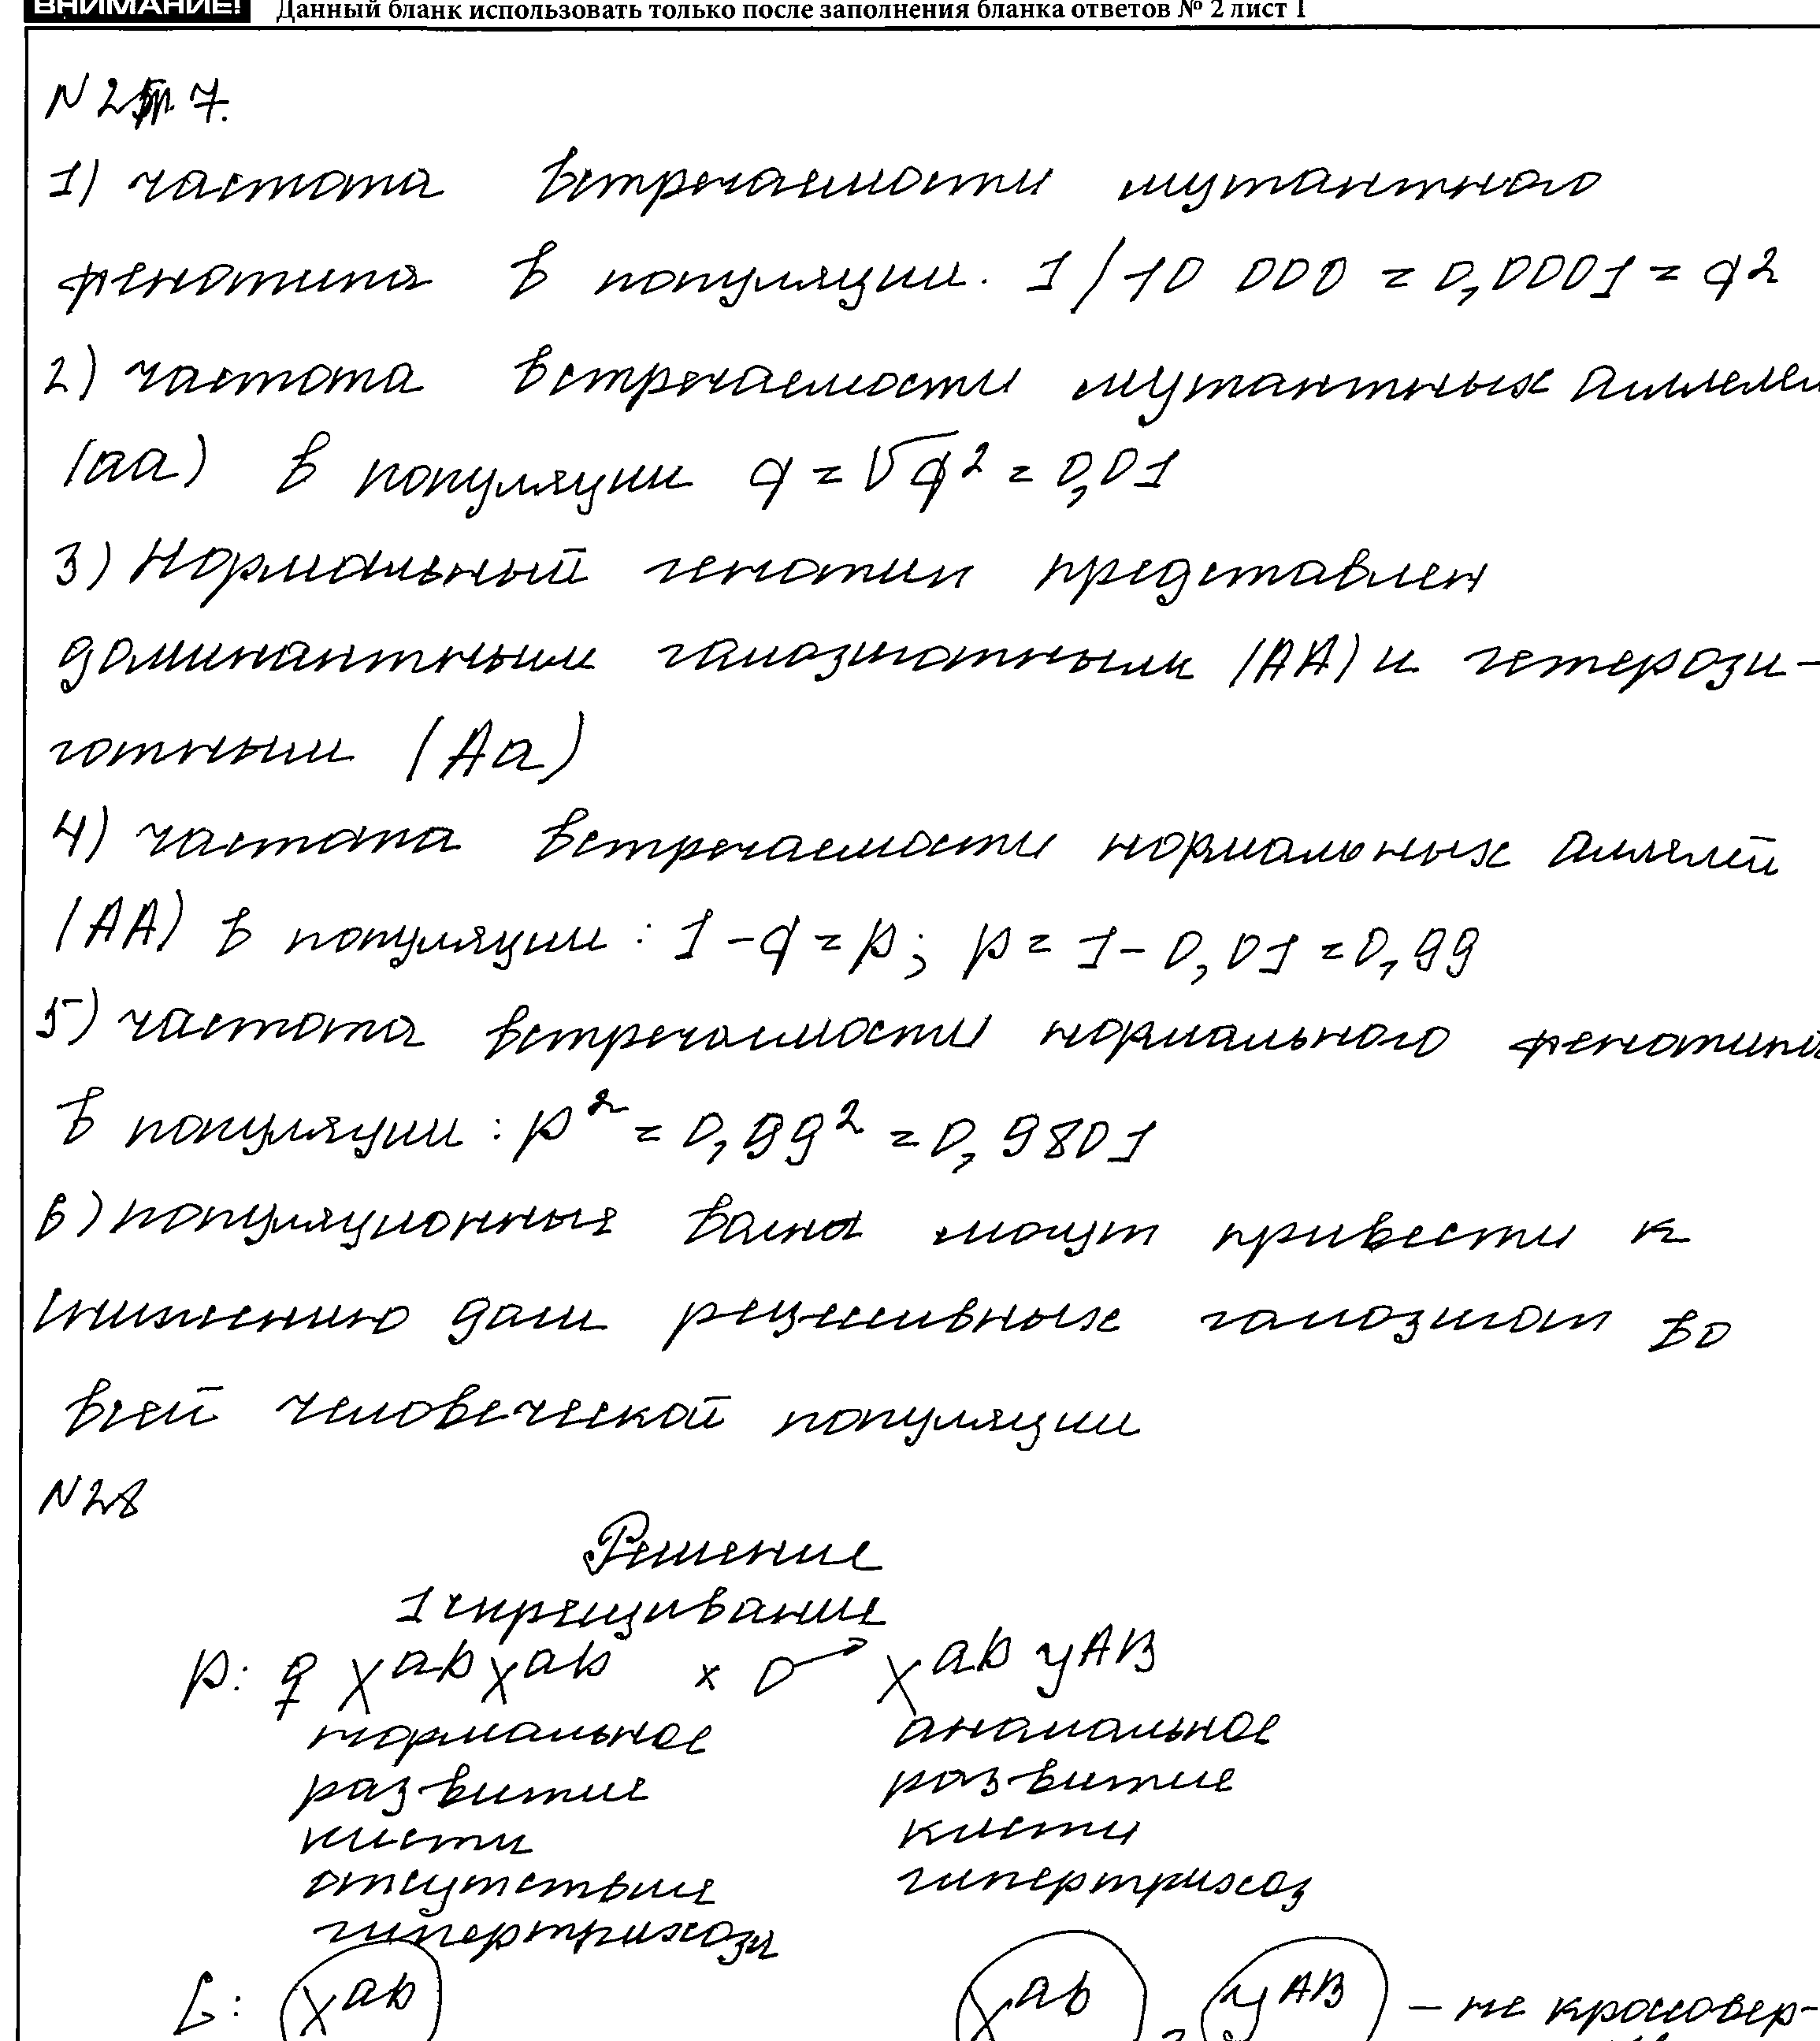 ВНИМАНИЕ! Данный бланк использовать только после заполнения бланка ответов № 2 лист 1
N 2 7.
1) частота встречаемости мутантного
фенотипа в популяции. 1/10 000 = 0,0001 = q²
2) частота встречаемости мутантных аллеле
(аа) в популяции q = √q² = 0,01
3) Нормальный генотип представлен
доминантными гамозиготными (АА) и гетерози-
готными (Аа)
4) частота встречаемости нормальных аллелей
(АА) в популяции: 1 - q = p; p = 1 - 0,01 = 0,99
5) частота встречаемости нормального фенотипа
в популяции: p² = 0,99² = 0,9801
6) популяционные волны могут привести к
снижению доли рецессивных гамозигот во
всей человеческой популяции
N28
Решение
1 скрещивание
p: ♀ X^ab X^ab × ♂ X^ab y^AB
нормальное аномальное
развитие развитие
кисти кисти
отсутствие гипертрихоз
гипертрихоза
G: X^ab X^ab y^AB - не кроссовер-